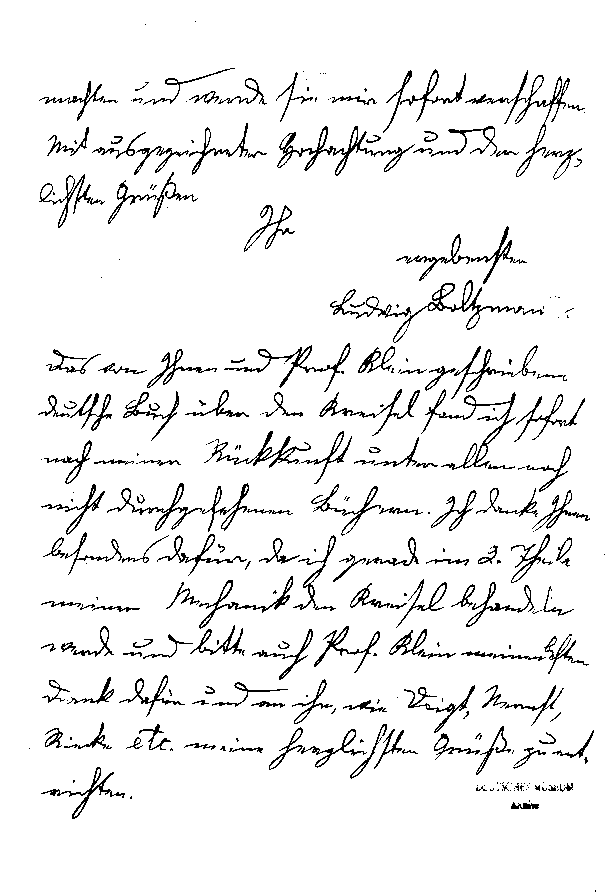 machten und werde sie mir sofort verschaffen.
Mit ausgezeichneter Hochachtung und den herz-
lichsten Grüßen
Ihr
ergebenster
Ludwig Boltzmann
Das von Ihnen und Prof. Klein geschriebene
deutsche Buch über den Kreisel fand ich sofort
nach meiner Rückkunft unter allen noch
nicht durchgesehenen Büchern. Ich danke Ihnen
besonders dafür, da ich gerade im 2. Theile
meiner Mechanik den Kreisel behandeln
werde und bitte auch Prof. Klein meinen besten
Dank dafür und an ihn, wie Voigt, Nernst,
Rieke etc. meine herzlichsten Grüße zu ent-
richten.
DEUTSCHES MUSEUM
Archiv